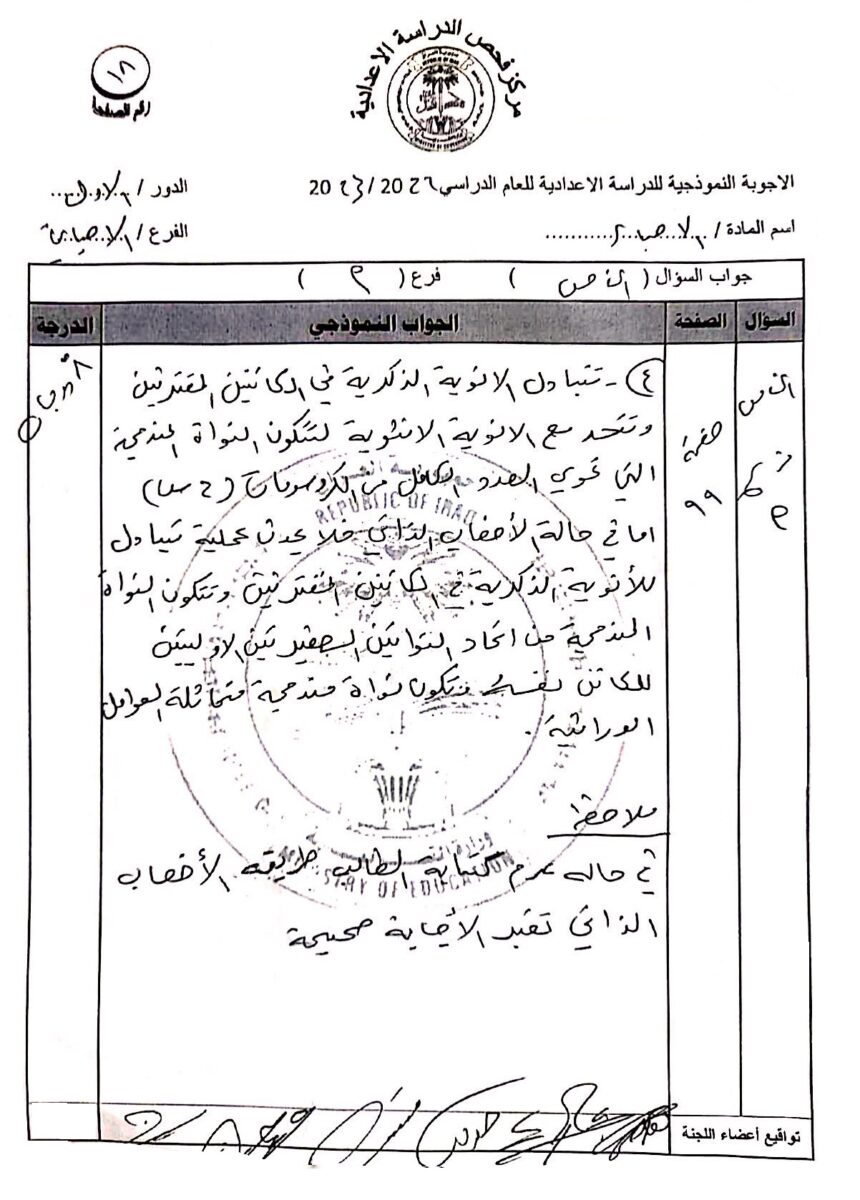 مركز فحص الدراسة الاعدادية
١٨
رقم الصفحة
الاجوبة النموذجية للدراسة الاعدادية للعام الدراسي ٢٦ 20 / ٢٣ 20
الدور / الاول
اسم المادة / الاحياء
الفرع / الاحيائي
جواب السؤال ( الخامس ) فرع ( م )
السؤال الصفحة الجواب النموذجي الدرجة
الخامس
صفحة
٩٩
٨ درجات
٤- تتبادل الانوية الذكرية في الكائنين المقترنين
وتتحد مع الانوية الانثوية لتتكون النواة المندمجة
التي تحوي العدد الكامل من الكروموسومات (٢س)
اما في حالة الأخصاب الذاتي فلا يحدث عملية تبادل
للأنوية الذكرية في الكائنين المقترنين وتتكون النواة
المندمجة من اتحاد النواتين الصغيرتين الاوليتين
للكائن نفسه وتكون نواة مندمجة متماثلة العوامل
الوراثية .
REPUBLIC OF IRAQ
ملاحظة
في حاله عدم كتابة الطالب طريقه الأخصاب
الذاتي تعتبر الأجابة صحيحة
تواقيع أعضاء اللجنة